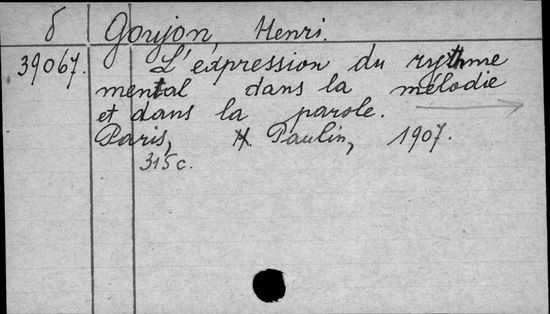 б Goujon, Henri.
39067. L'expression du rythme
mental dans la mélodie
et dans la parole.
Paris, H. Paulin, 1907.
315 c.